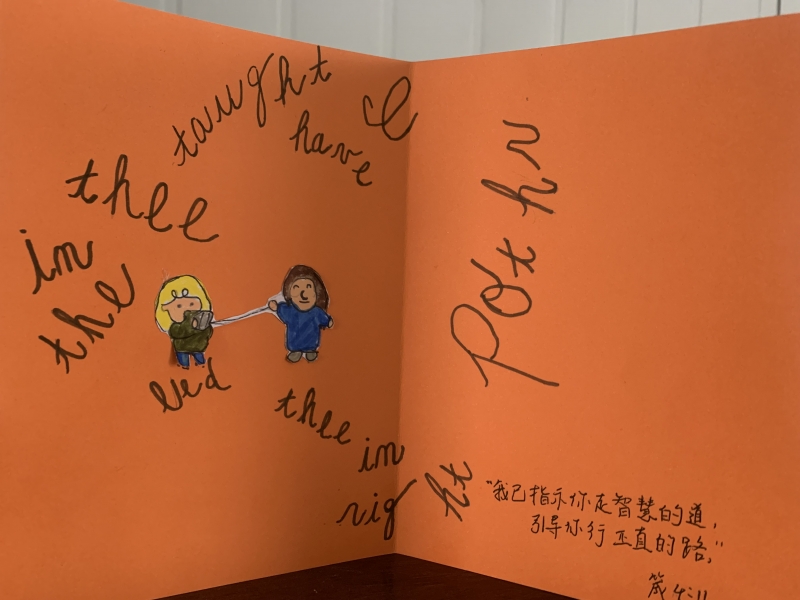 I
have
taught
thee
in
the
led
thee
in
right
paths
“我已指示你走智慧的道,
引导你行正直的路,”
箴4:11